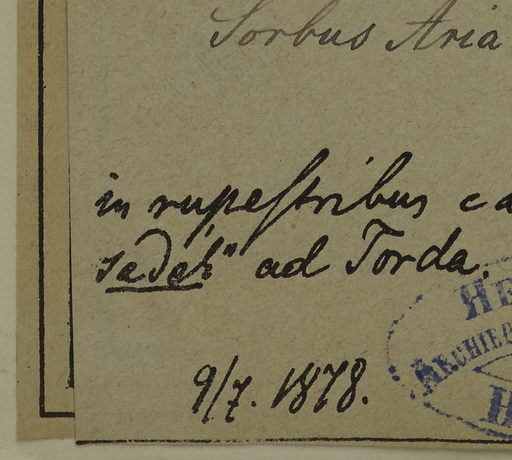 Sorbus Aria
in rupeſtribus ca
ad Torda.
9/7. 1878.
HE
ARCHIEP
H